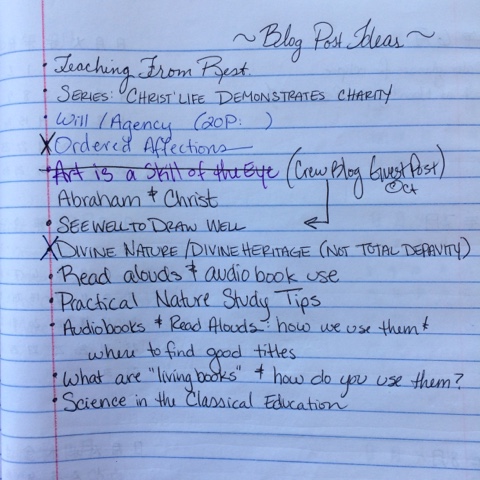 ~ Blog Post Ideas ~
• Teaching From Rest.
• SERIES: CHRIST' LIFE DEMONSTRATES CHARITY
• Will / Agency (20P: )
X Ordered Affections
• Art is a Skill of the Eye (Crew Blog Guest Post)
Oct
Abraham & Christ
• SEE WELL TO DRAW WELL
X DIVINE NATURE / DIVINE HERITAGE (NOT TOTAL DEPAVITY)
• Read alouds & audio book use
• Practical Nature Study Tips
• Audiobooks & Read Alouds: how we use them &
where to find good titles
• What are "living books" & how do you use them?
• Science in the Classical Education